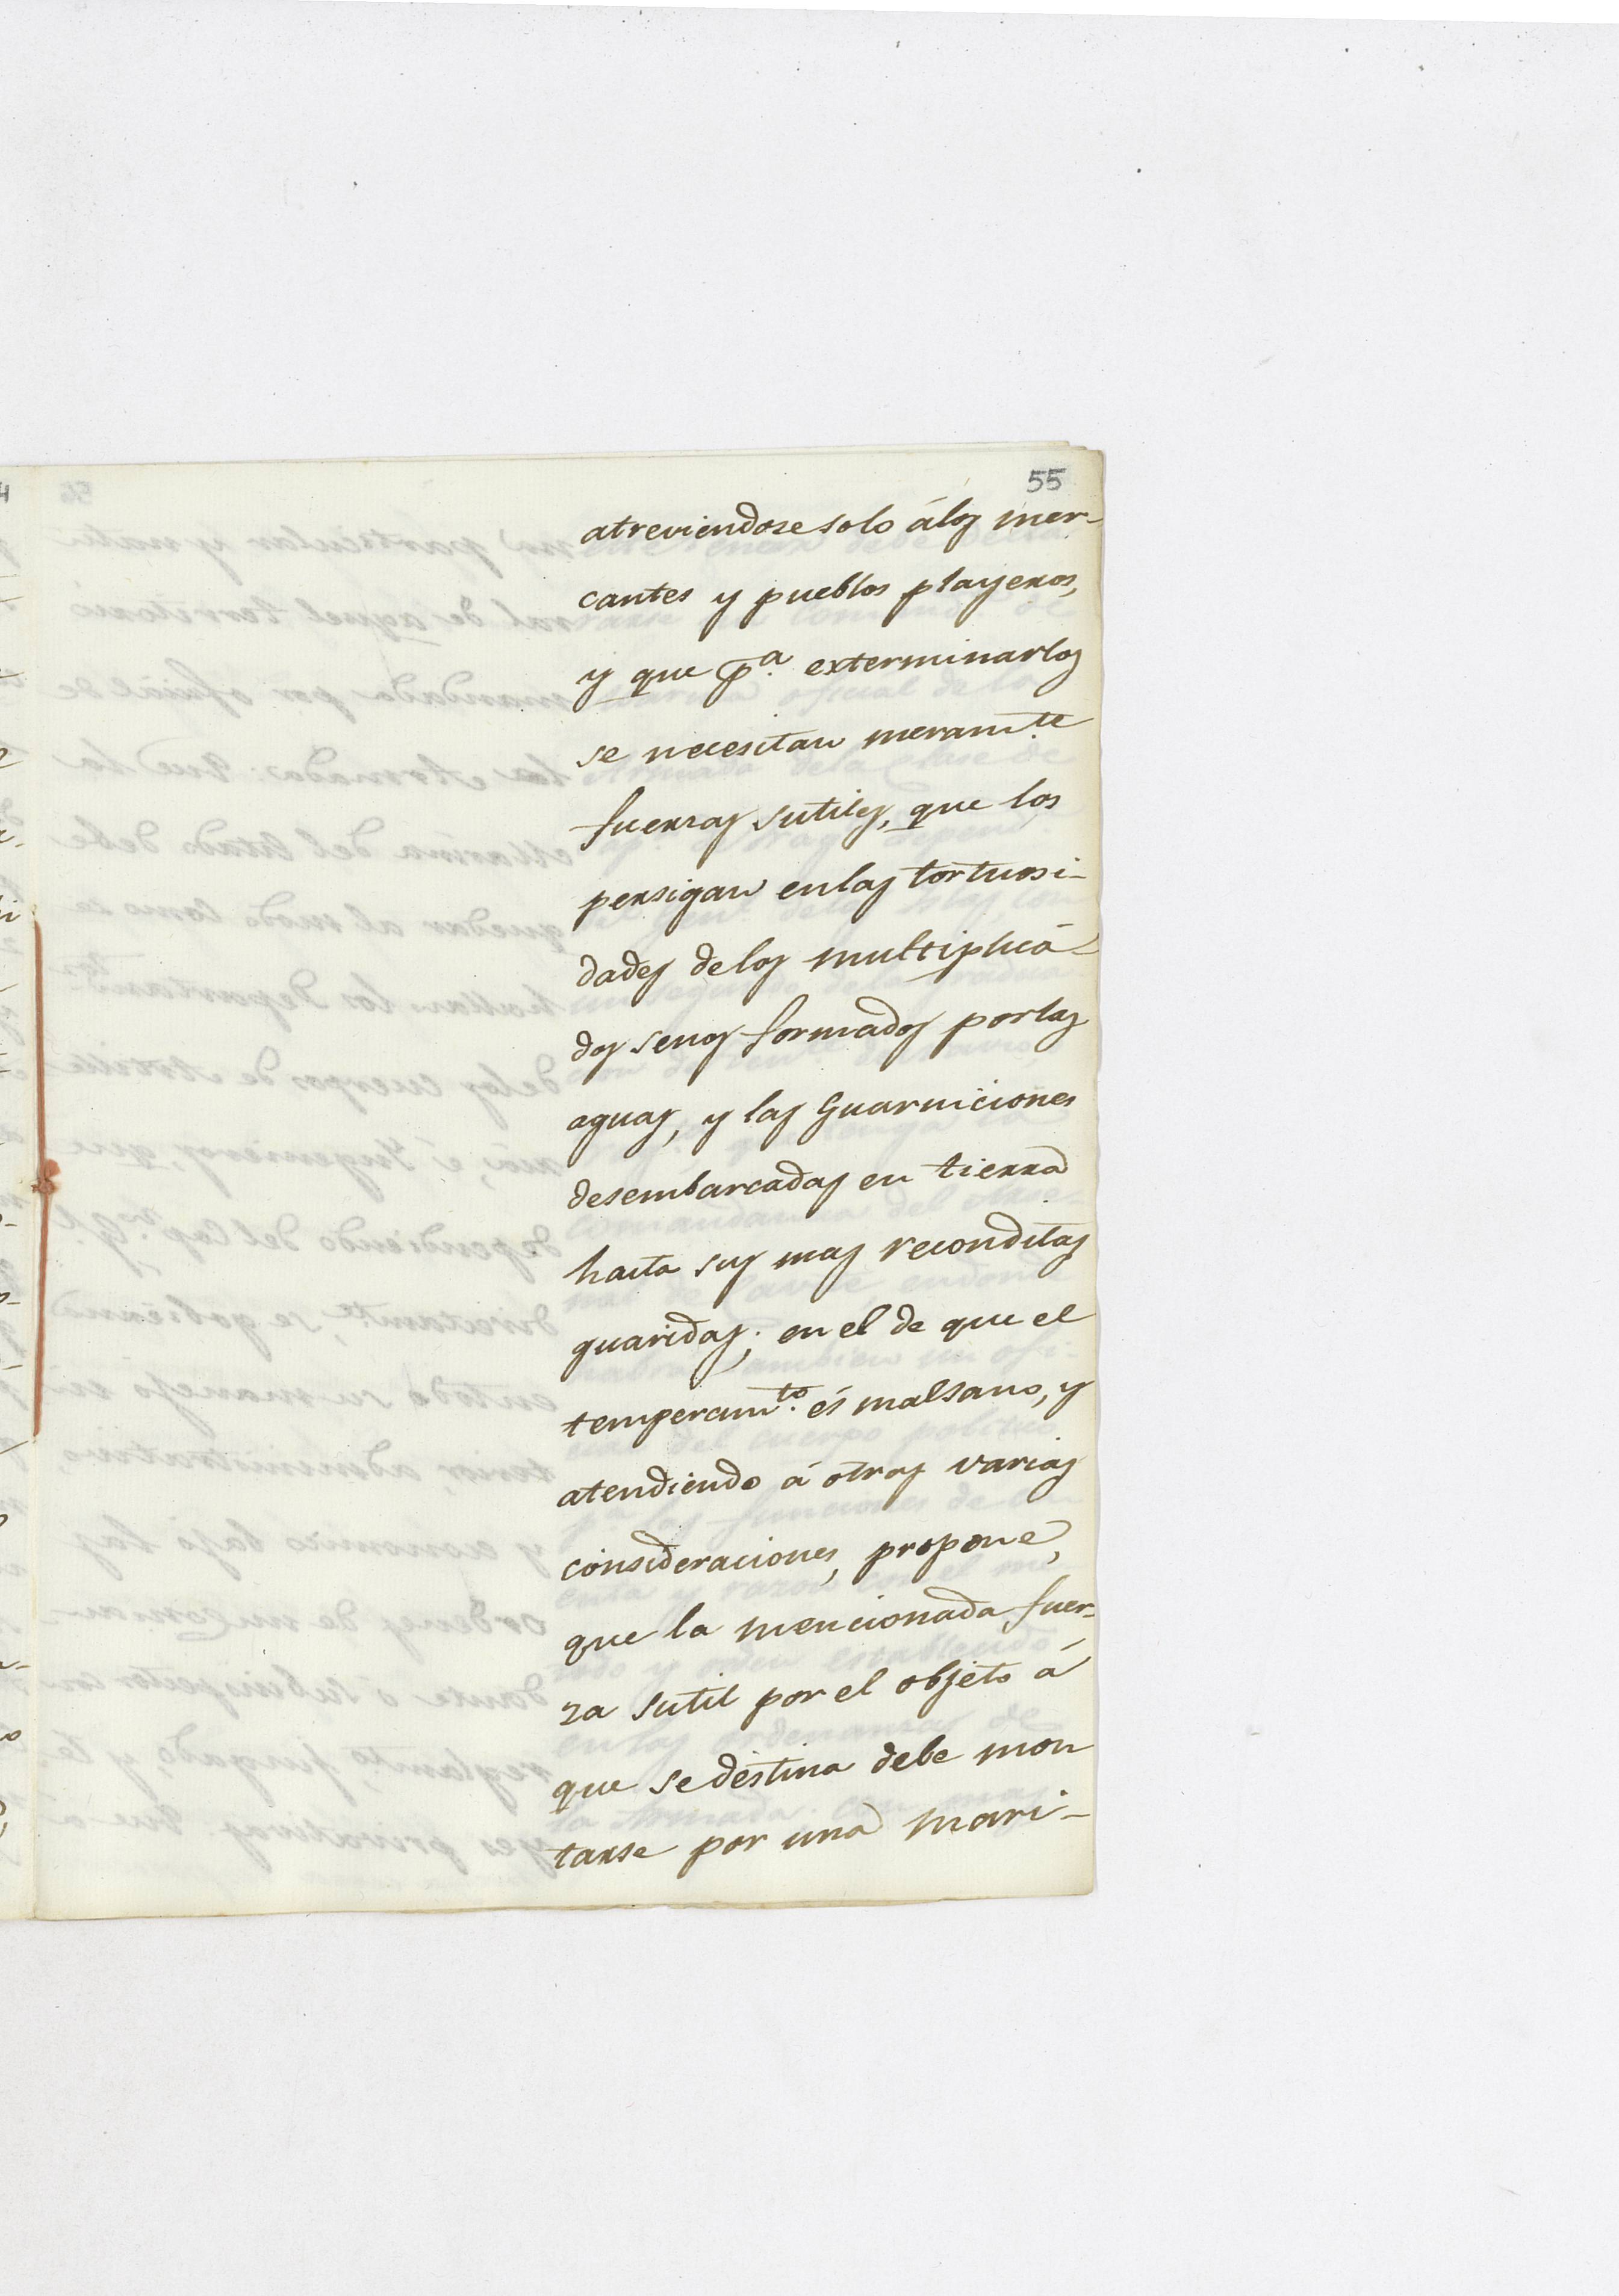 55
atreviendose solo álos mer-
cantes y pueblos playeros,
y que pª. exterminarlos
se necesitan meramte.
fuerzas sutiles, que los
persigan enlas tortuosi-
dades delos multiplica-
dos senos formados porlas
aguas, y las Guarniciones
desembarcadas en tierra
hasta sus mas reconditas
guaridas; en el de que el
temperamto. és malsano, y
atendiendo á otras varias
consideraciones, propone,
que la mencionada fuer-
za sutil por el objeto á
que se destina debe mon
tarse por una mari-